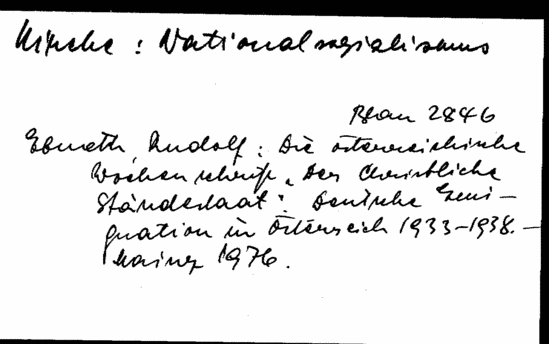 Kirche : Nationalsozialismus
2846
Ebneth, Rudolf: Die österreichische
Wochenschrift „Der Christliche
Ständestaat": Deutsche Emi-
gration in Österreich 1933-1938. -
Mainz 1976.